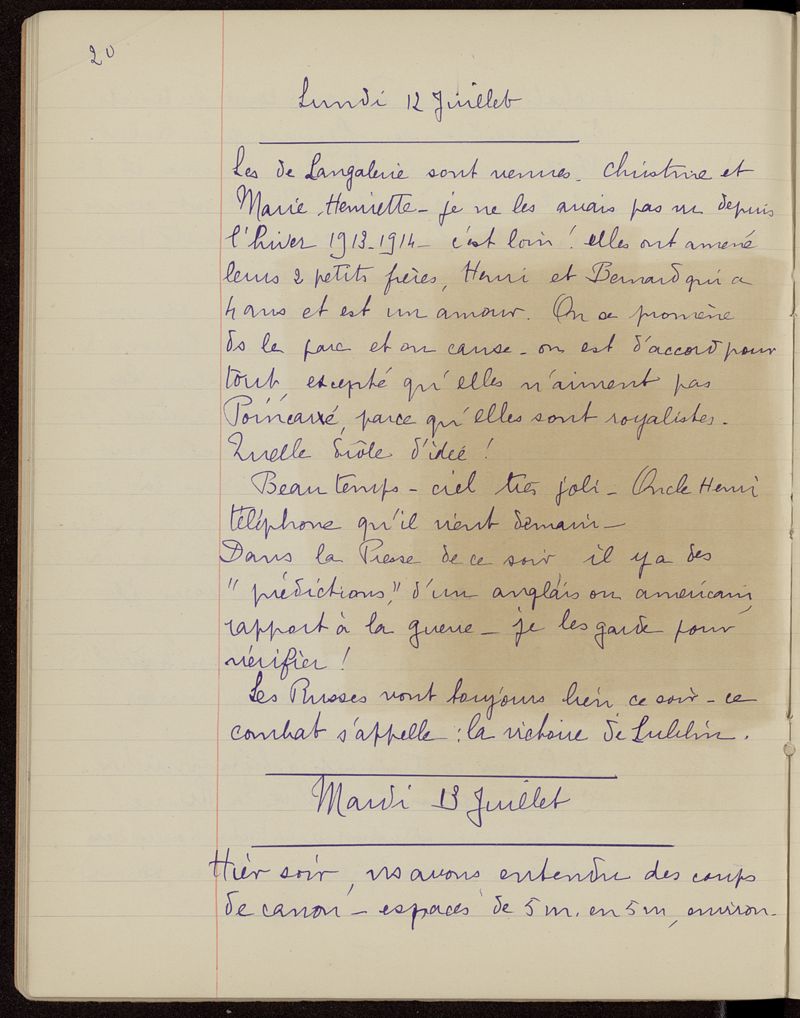 20
Lundi 12 Juillet
Les de Langalerie sont venues - Christine et
Marie-Henriette - je ne les avais pas vu depuis
l'hiver 1913-1914 - c'est loin ! elles ont amené
leurs 2 petits frères, Henri et Bernard qui a
4 ans et est un amour. On se promène
ds le parc et on cause - on est d'accord pour
tout, excepté qu'elles n'aiment pas
Poincarré, parce qu'elles sont royalistes.
Quelle drôle d'idée !
Beau temps - ciel très joli - Oncle Henri
téléphone qu'il vient demain -
Dans la Presse de ce soir, il y a des
"prédictions," d'un anglais ou americain,
rapport à la guerre - je les garde pour
vérifier !
Les Russes vont toujours bien, ce soir - ce
combat s'appelle : la victoire de Lublin.
Mardi 13 Juillet
Hier soir, ns avons entendu des coups
de canon - espacés de 5 m. en 5 m, environ -